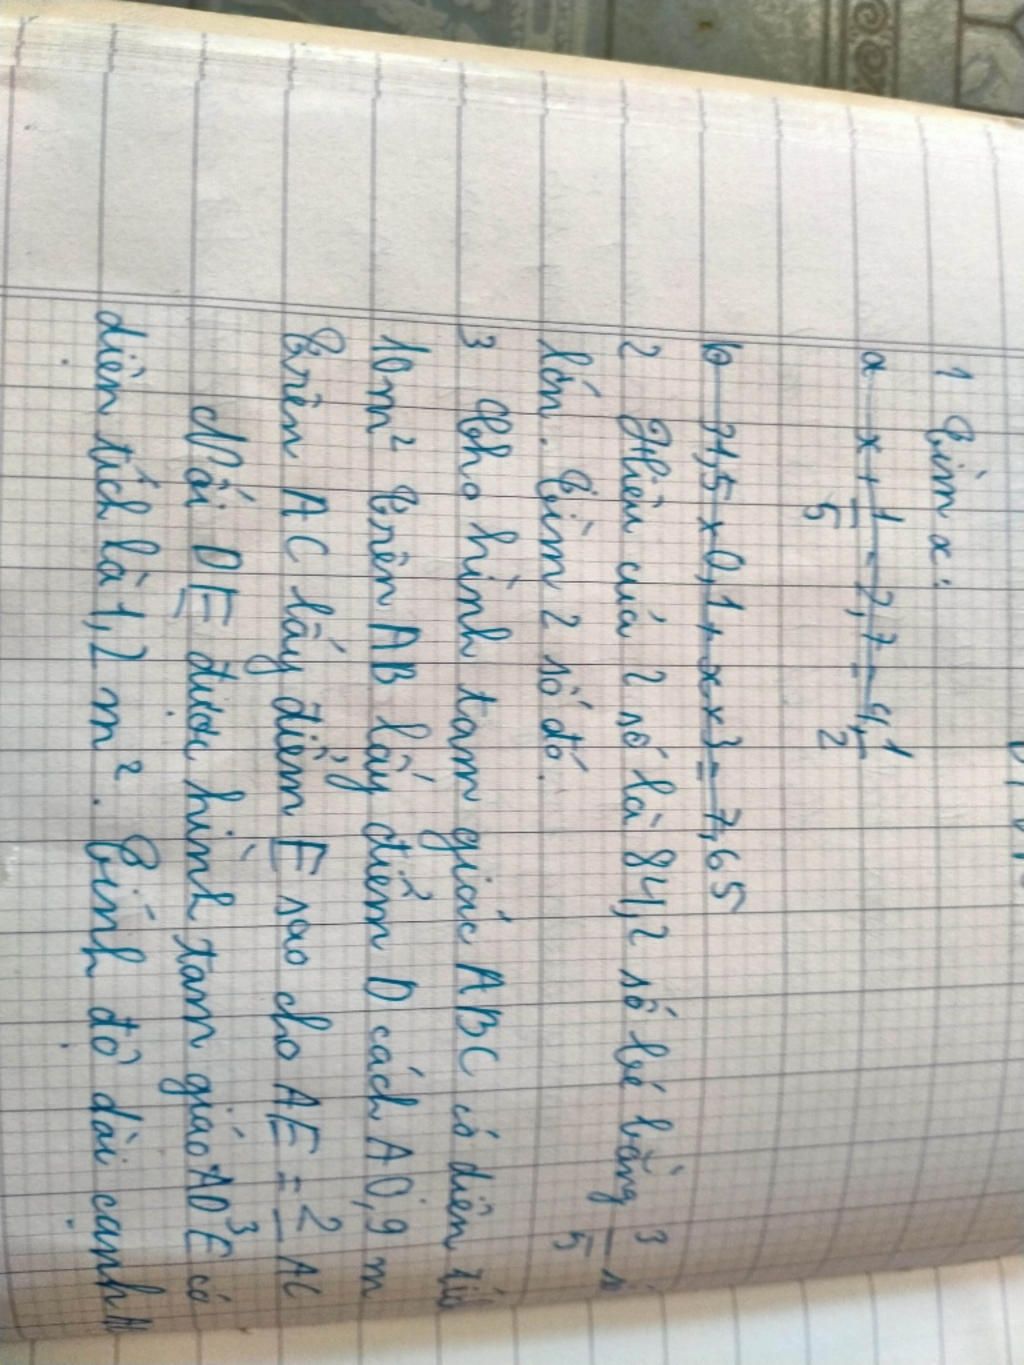 1 Tìm x:
a x + 1/5 - 2,7 = 4,1/2
b 31,5 x 0,1 + x x 3 = 7,65
2 Hiệu của 2 số là 84,2 số bé bằng 3/5 số
lớn. Tìm 2 số đó.
3 Cho hình tam giác ABC có diện
10m² Trên AB lấy điểm D cách A 0,9 m
Trên AC lấy điểm E sao cho AE = 2/3 AC
Nối DE được hình tam giác ADE có
diện tích là 1,2 m². Tính độ dài cạnh